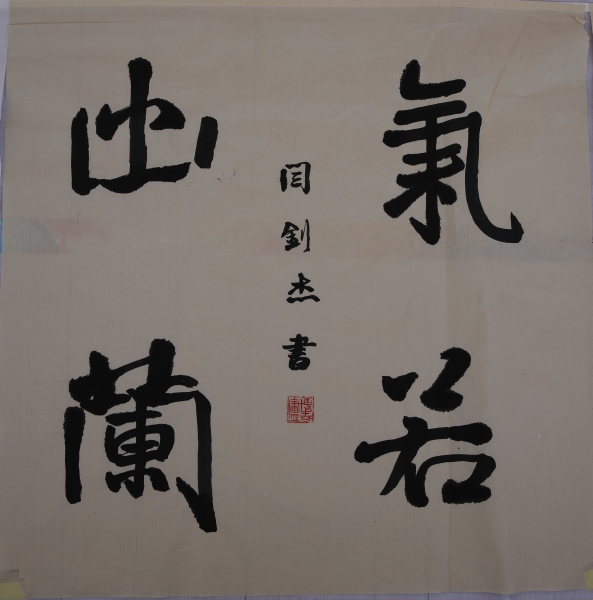 氣若
幽蘭
闫釗杰書